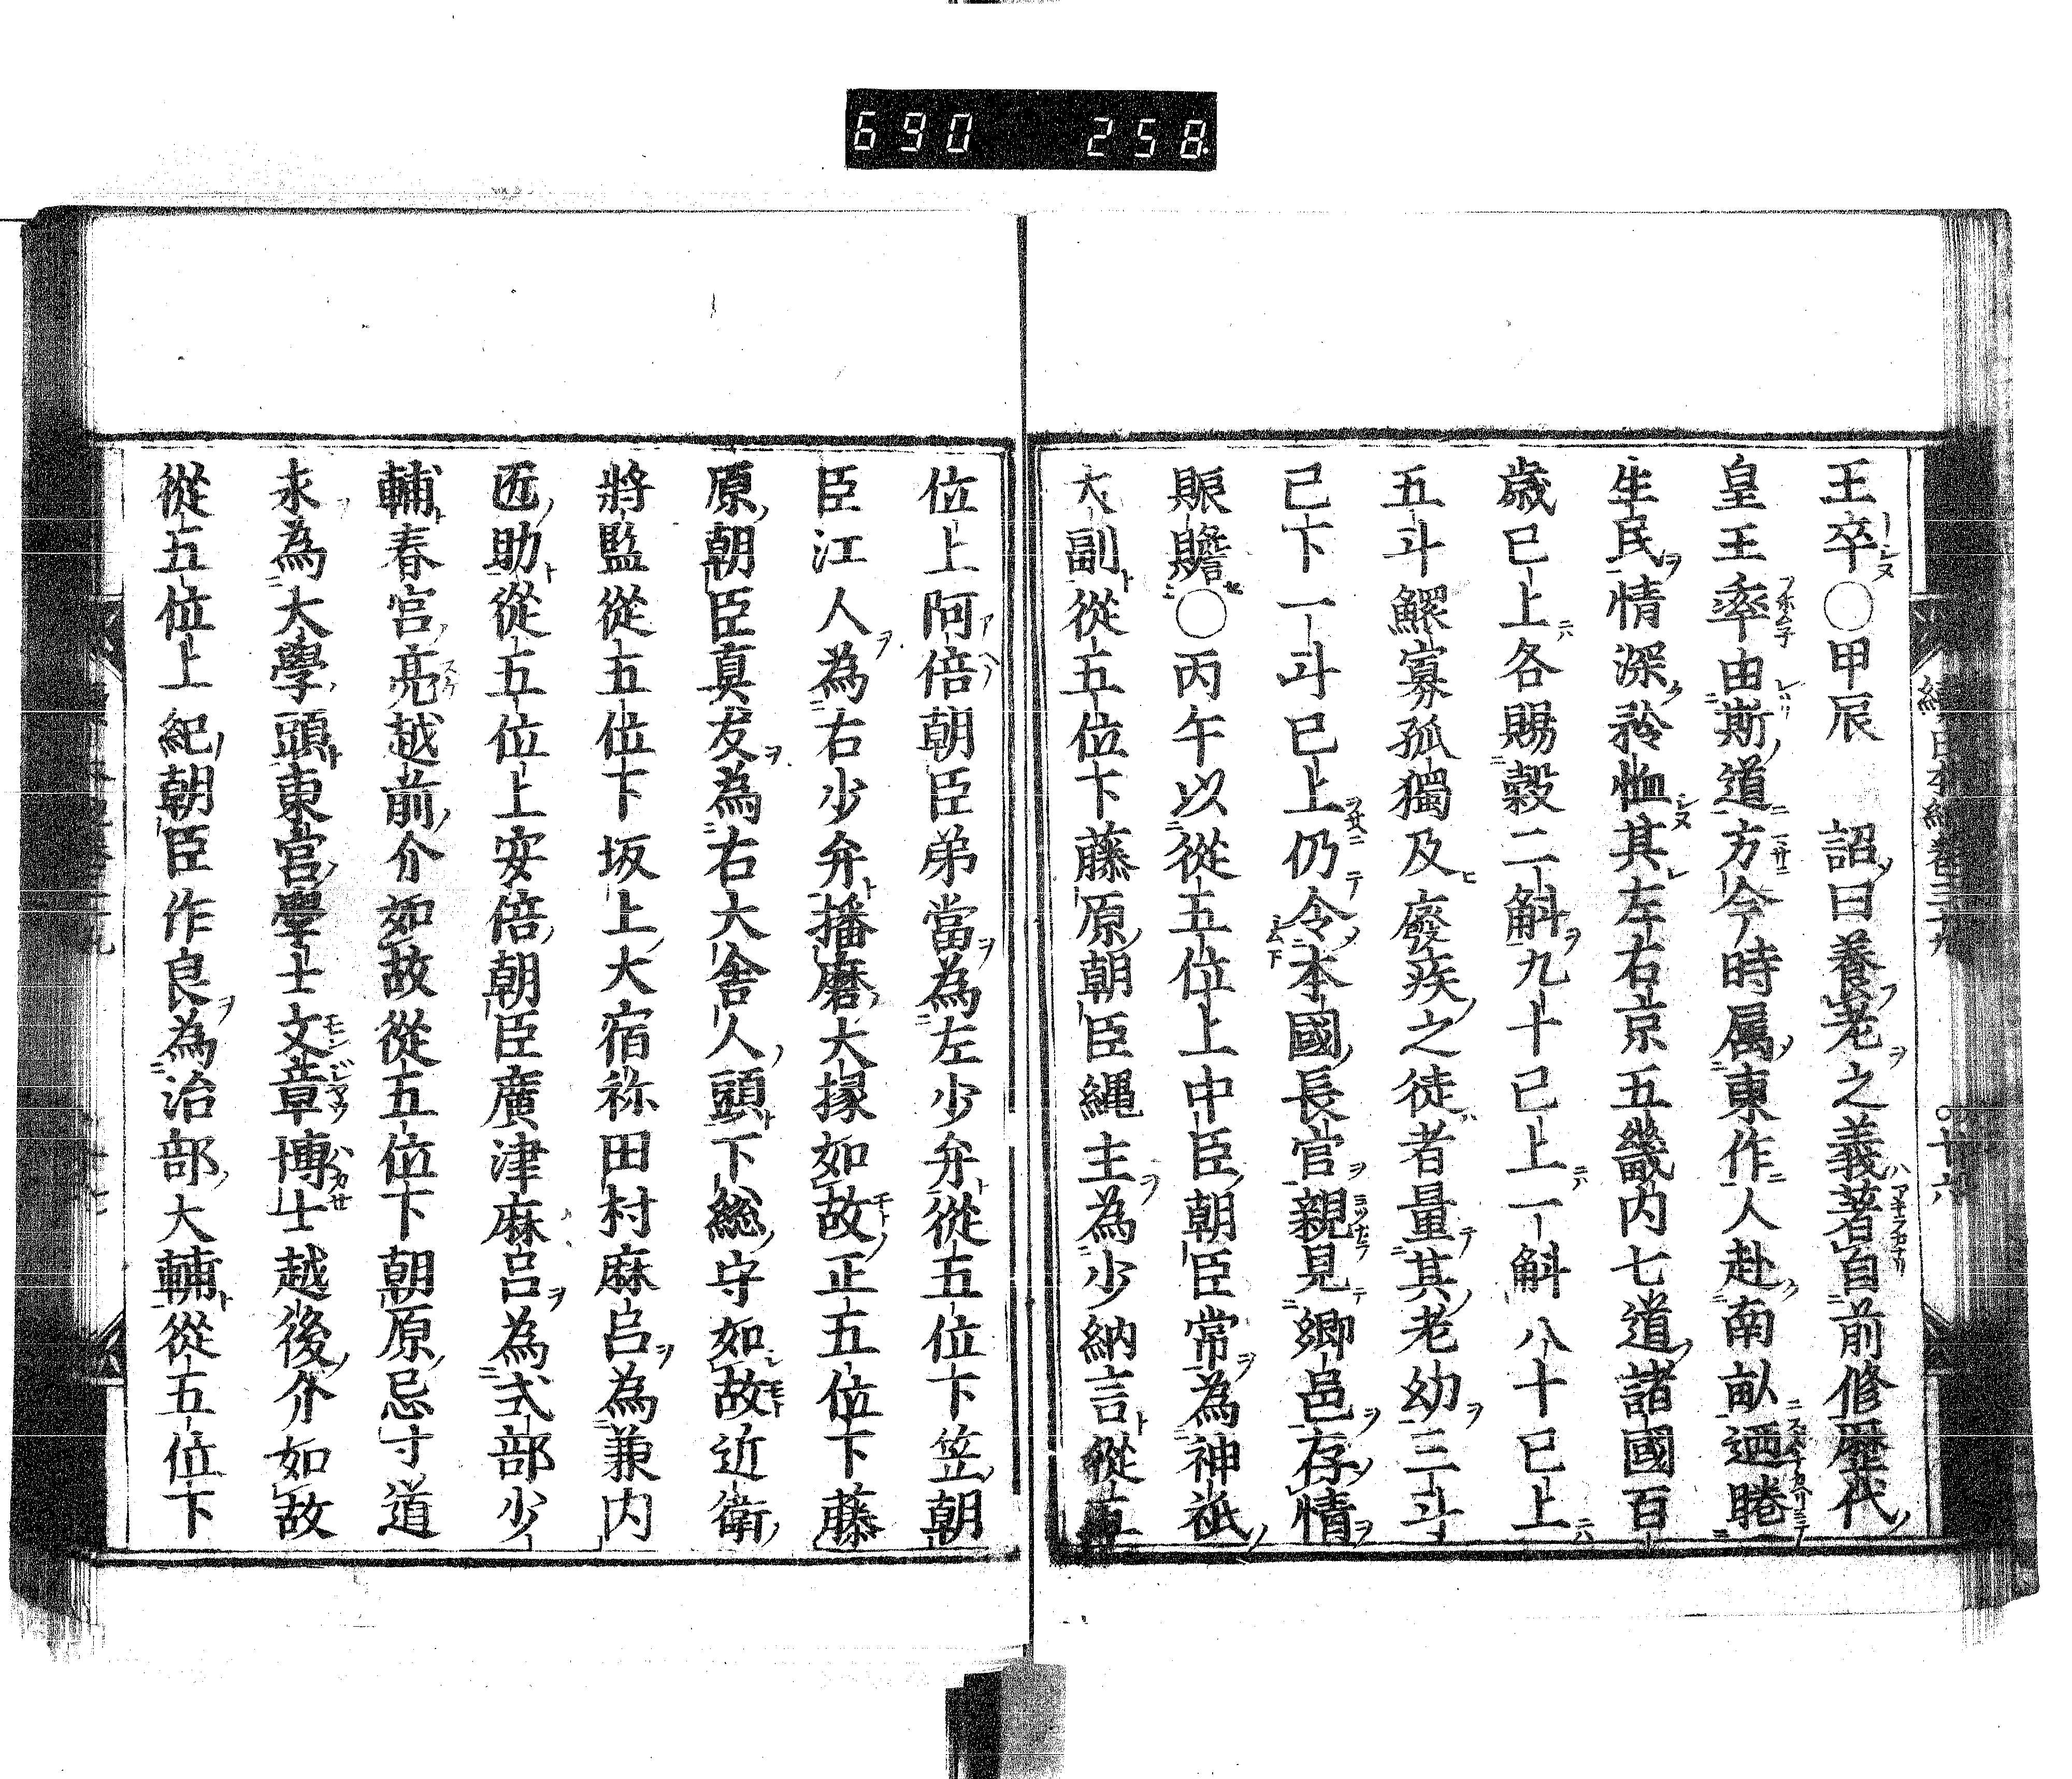 690 258
王卒○甲辰 詔曰養老之義著自前修歷代
皇王率由斯道方今時属東作人赴南畝迺睠
生民情深矜恤其左右京五畿内七道諸國百
歲已上各賜穀二斛九十已上一斛八十已上
五斗鰥寡孤獨及癈疾之徒者量其老幼三斗
已下一斗已上仍令本國長官親見鄉邑存情
賑贍○丙午以從五位上中臣朝臣常為神祇
大副從五位下藤原朝臣縄主為少納言從五
位上阿倍朝臣弟當為左少弁從五位下笠朝
臣江人為右少弁播磨大掾如故正五位下藤
原朝臣真友為右大舎人頭下総守如故近衛
將監從五位下坂上大宿祢田村麻呂為兼内
匠助從五位上安倍朝臣廣津麻呂為式部少
輔春宮亮越前介如故從五位下朝原忌寸道
永為大學頭東宮學士文章博士越後介如故
從五位上紀朝臣作良為治部大輔從五位下